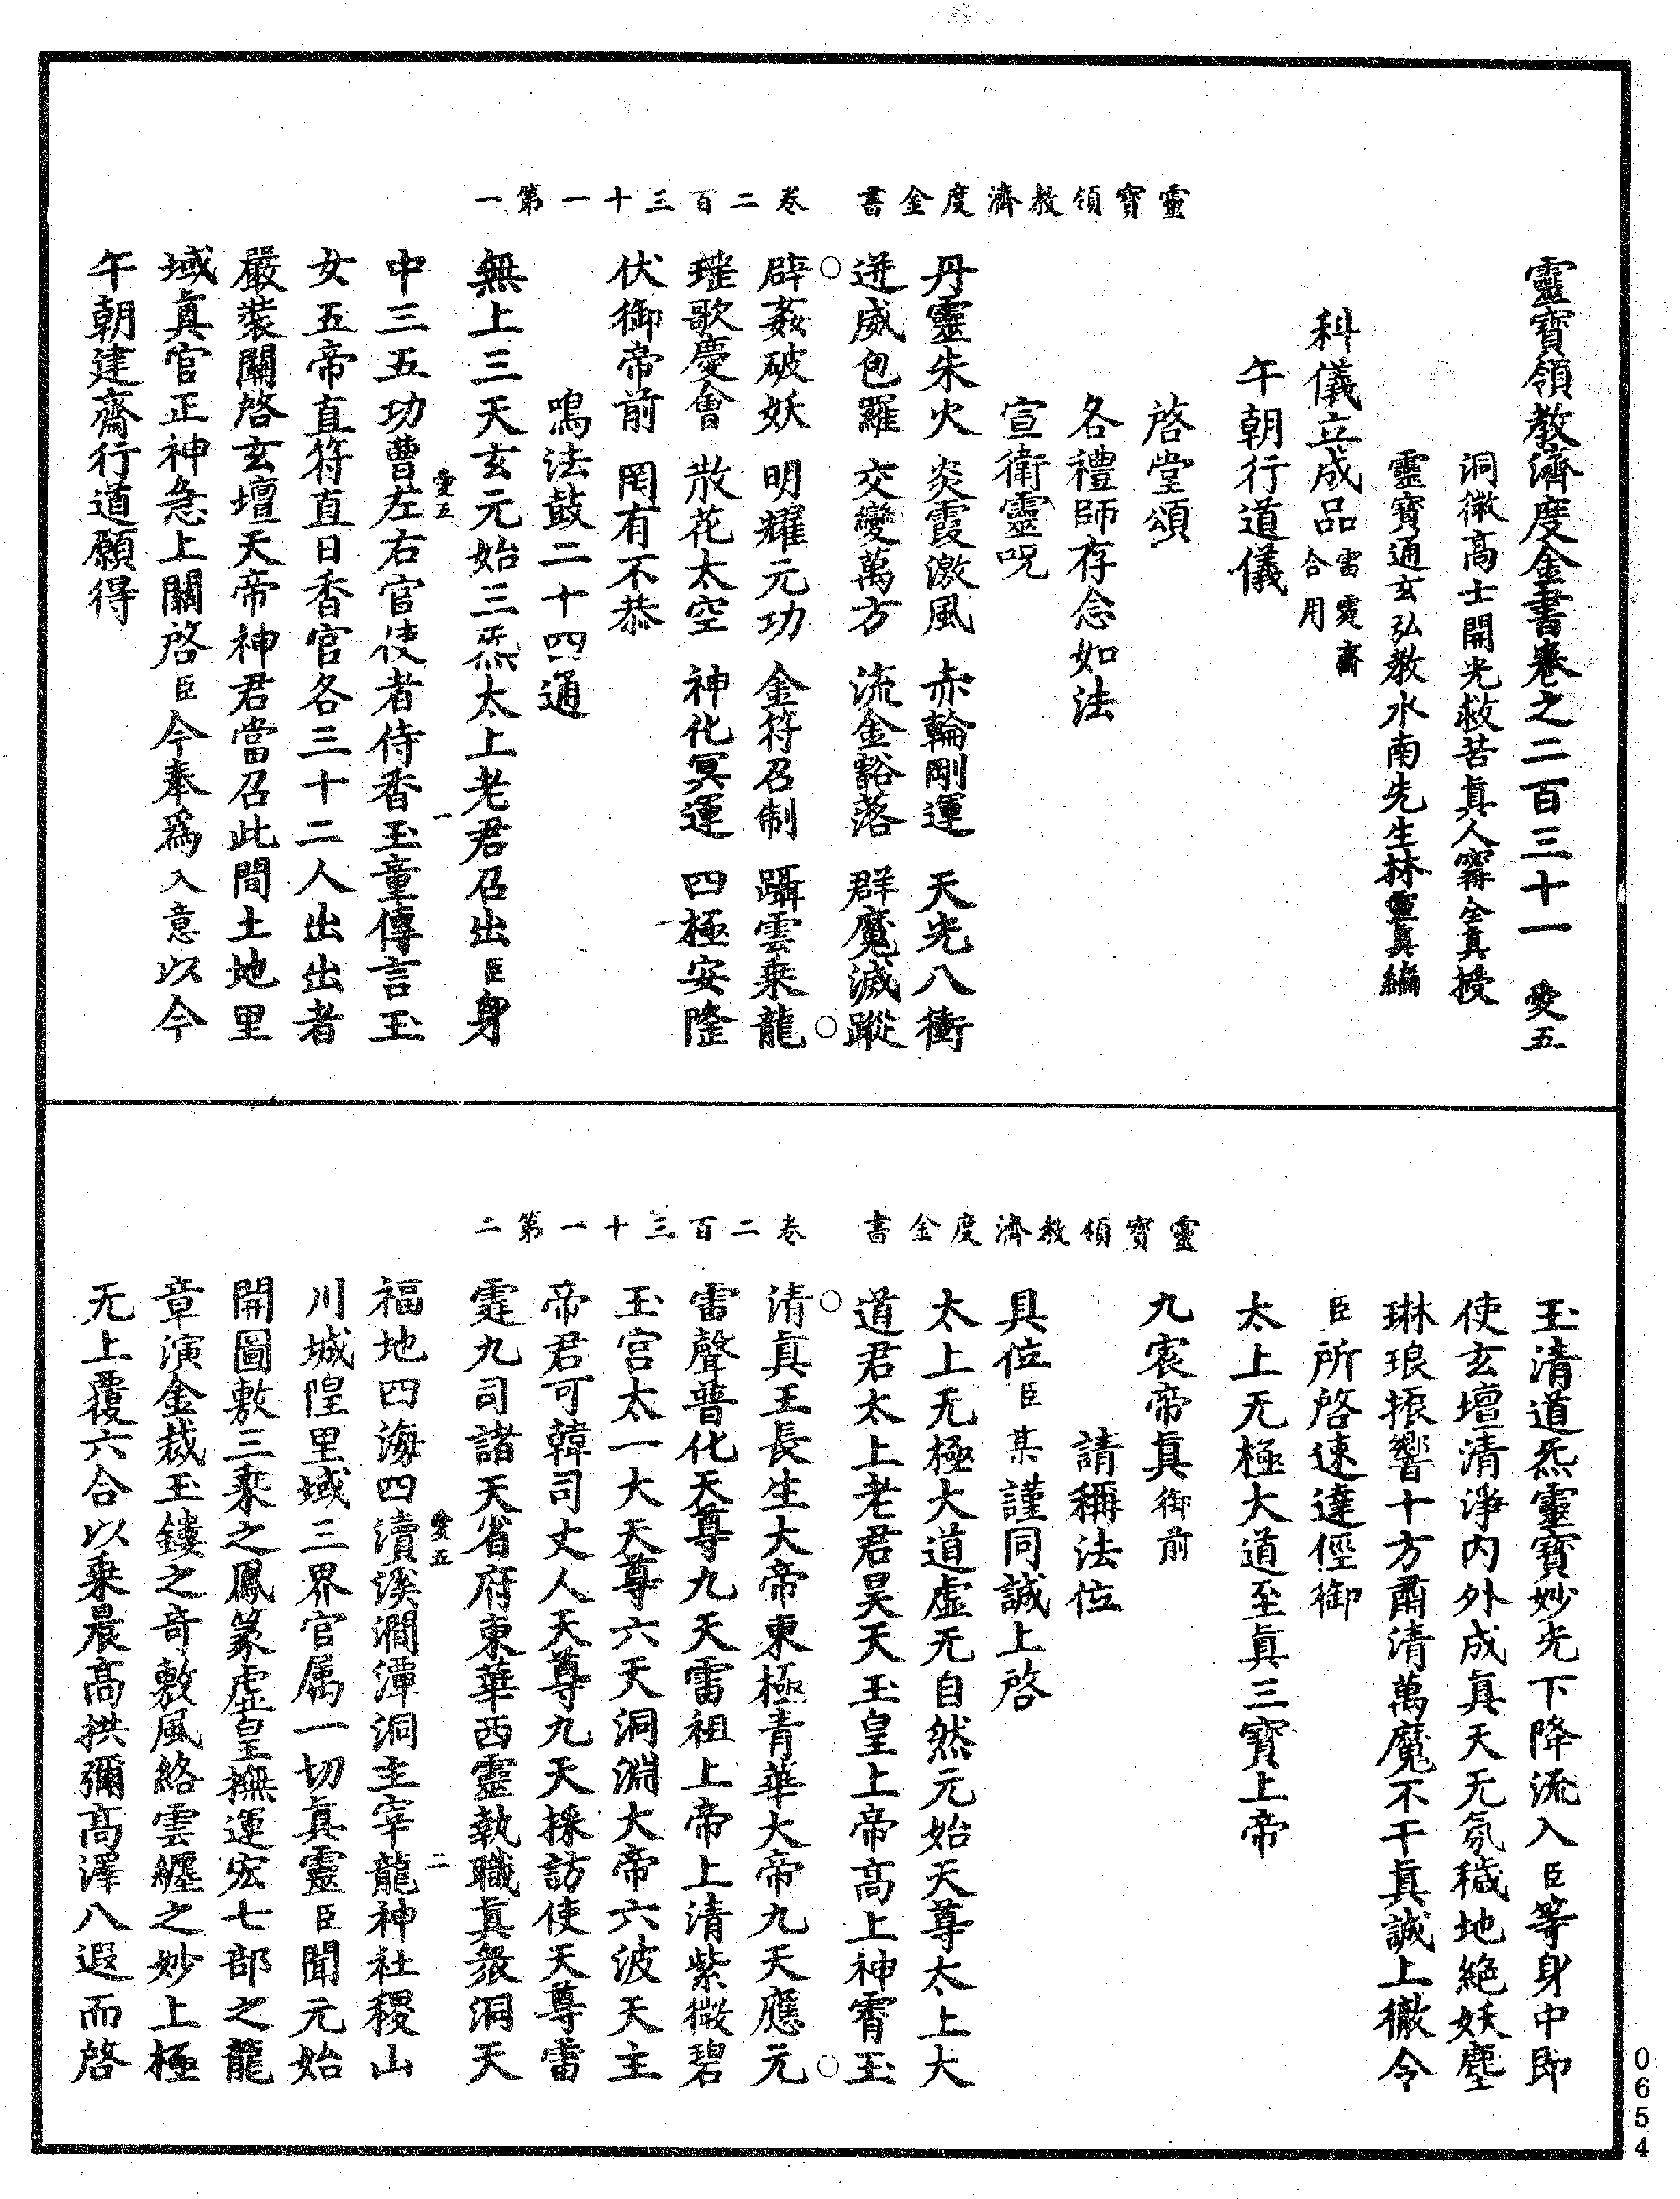 靈寶領教濟度金書卷之二百三十一　愛五
洞微高士開光救苦真人甯全真授
靈寶通玄弘教水南先生林靈真編
科儀立成品雷霆齋合用
午朝行道儀
啓堂頌
各禮師存念如法
宣衛靈呪
丹靈朱火　炎霞激風　赤輪剛運　天光八衝
迸威包羅　交變萬方　流金豁落　群魔滅蹤
辟姦破妖　明耀元功　金符召制　躡雲乘龍
璀歌慶會　散花太空　神化冥運　四極安隆
伏御帝前　罔有不恭
鳴法鼓二十四通
無上三天玄元始三炁太上老君召出臣身
中三五功曹左右官使者侍香玉童傳言玉
女五帝直符直日香官各三十二人出出者
嚴裝關啓玄壇天帝神君當召此間土地里
域真官正神急上關啓臣今奉爲入意以今
午朝建齋行道願得
靈寶領教濟度金書　卷二百三十一第一
愛五　一
玉清道炁靈寶妙光下降流入臣等身中即
使玄壇清淨內外成真天无氛穢地絕妖塵
琳琅振響十方肅清萬魔不干真誠上徹令
臣所啓速達徑御
太上无極大道至真三寶上帝
九宸帝真御前
請稱法位
具位臣某謹同誠上啓
太上无極大道虛无自然元始天尊太上大
道君太上老君昊天玉皇上帝高上神霄玉
清真王長生大帝東極青華大帝九天應元
雷聲普化天尊九天雷祖上帝上清紫微碧
玉宮太一大天尊六天洞淵大帝六波天主
帝君可韓司丈人天尊九天採訪使天尊雷
霆九司諸天省府東華西靈執職真衆洞天
福地四海四瀆溪澗潭洞主宰龍神社稷山
川城隍里域三界官属一切真靈臣聞元始
開圖敷三乘之鳳篆虛皇撫運宏七部之龍
章演金裁玉鏤之奇敷風絡雲纏之妙上極
无上覆六合以乘晨高拱彌高澤八遐而啓
靈寶領教濟度金書　卷二百三十一第二
愛五　二
0654